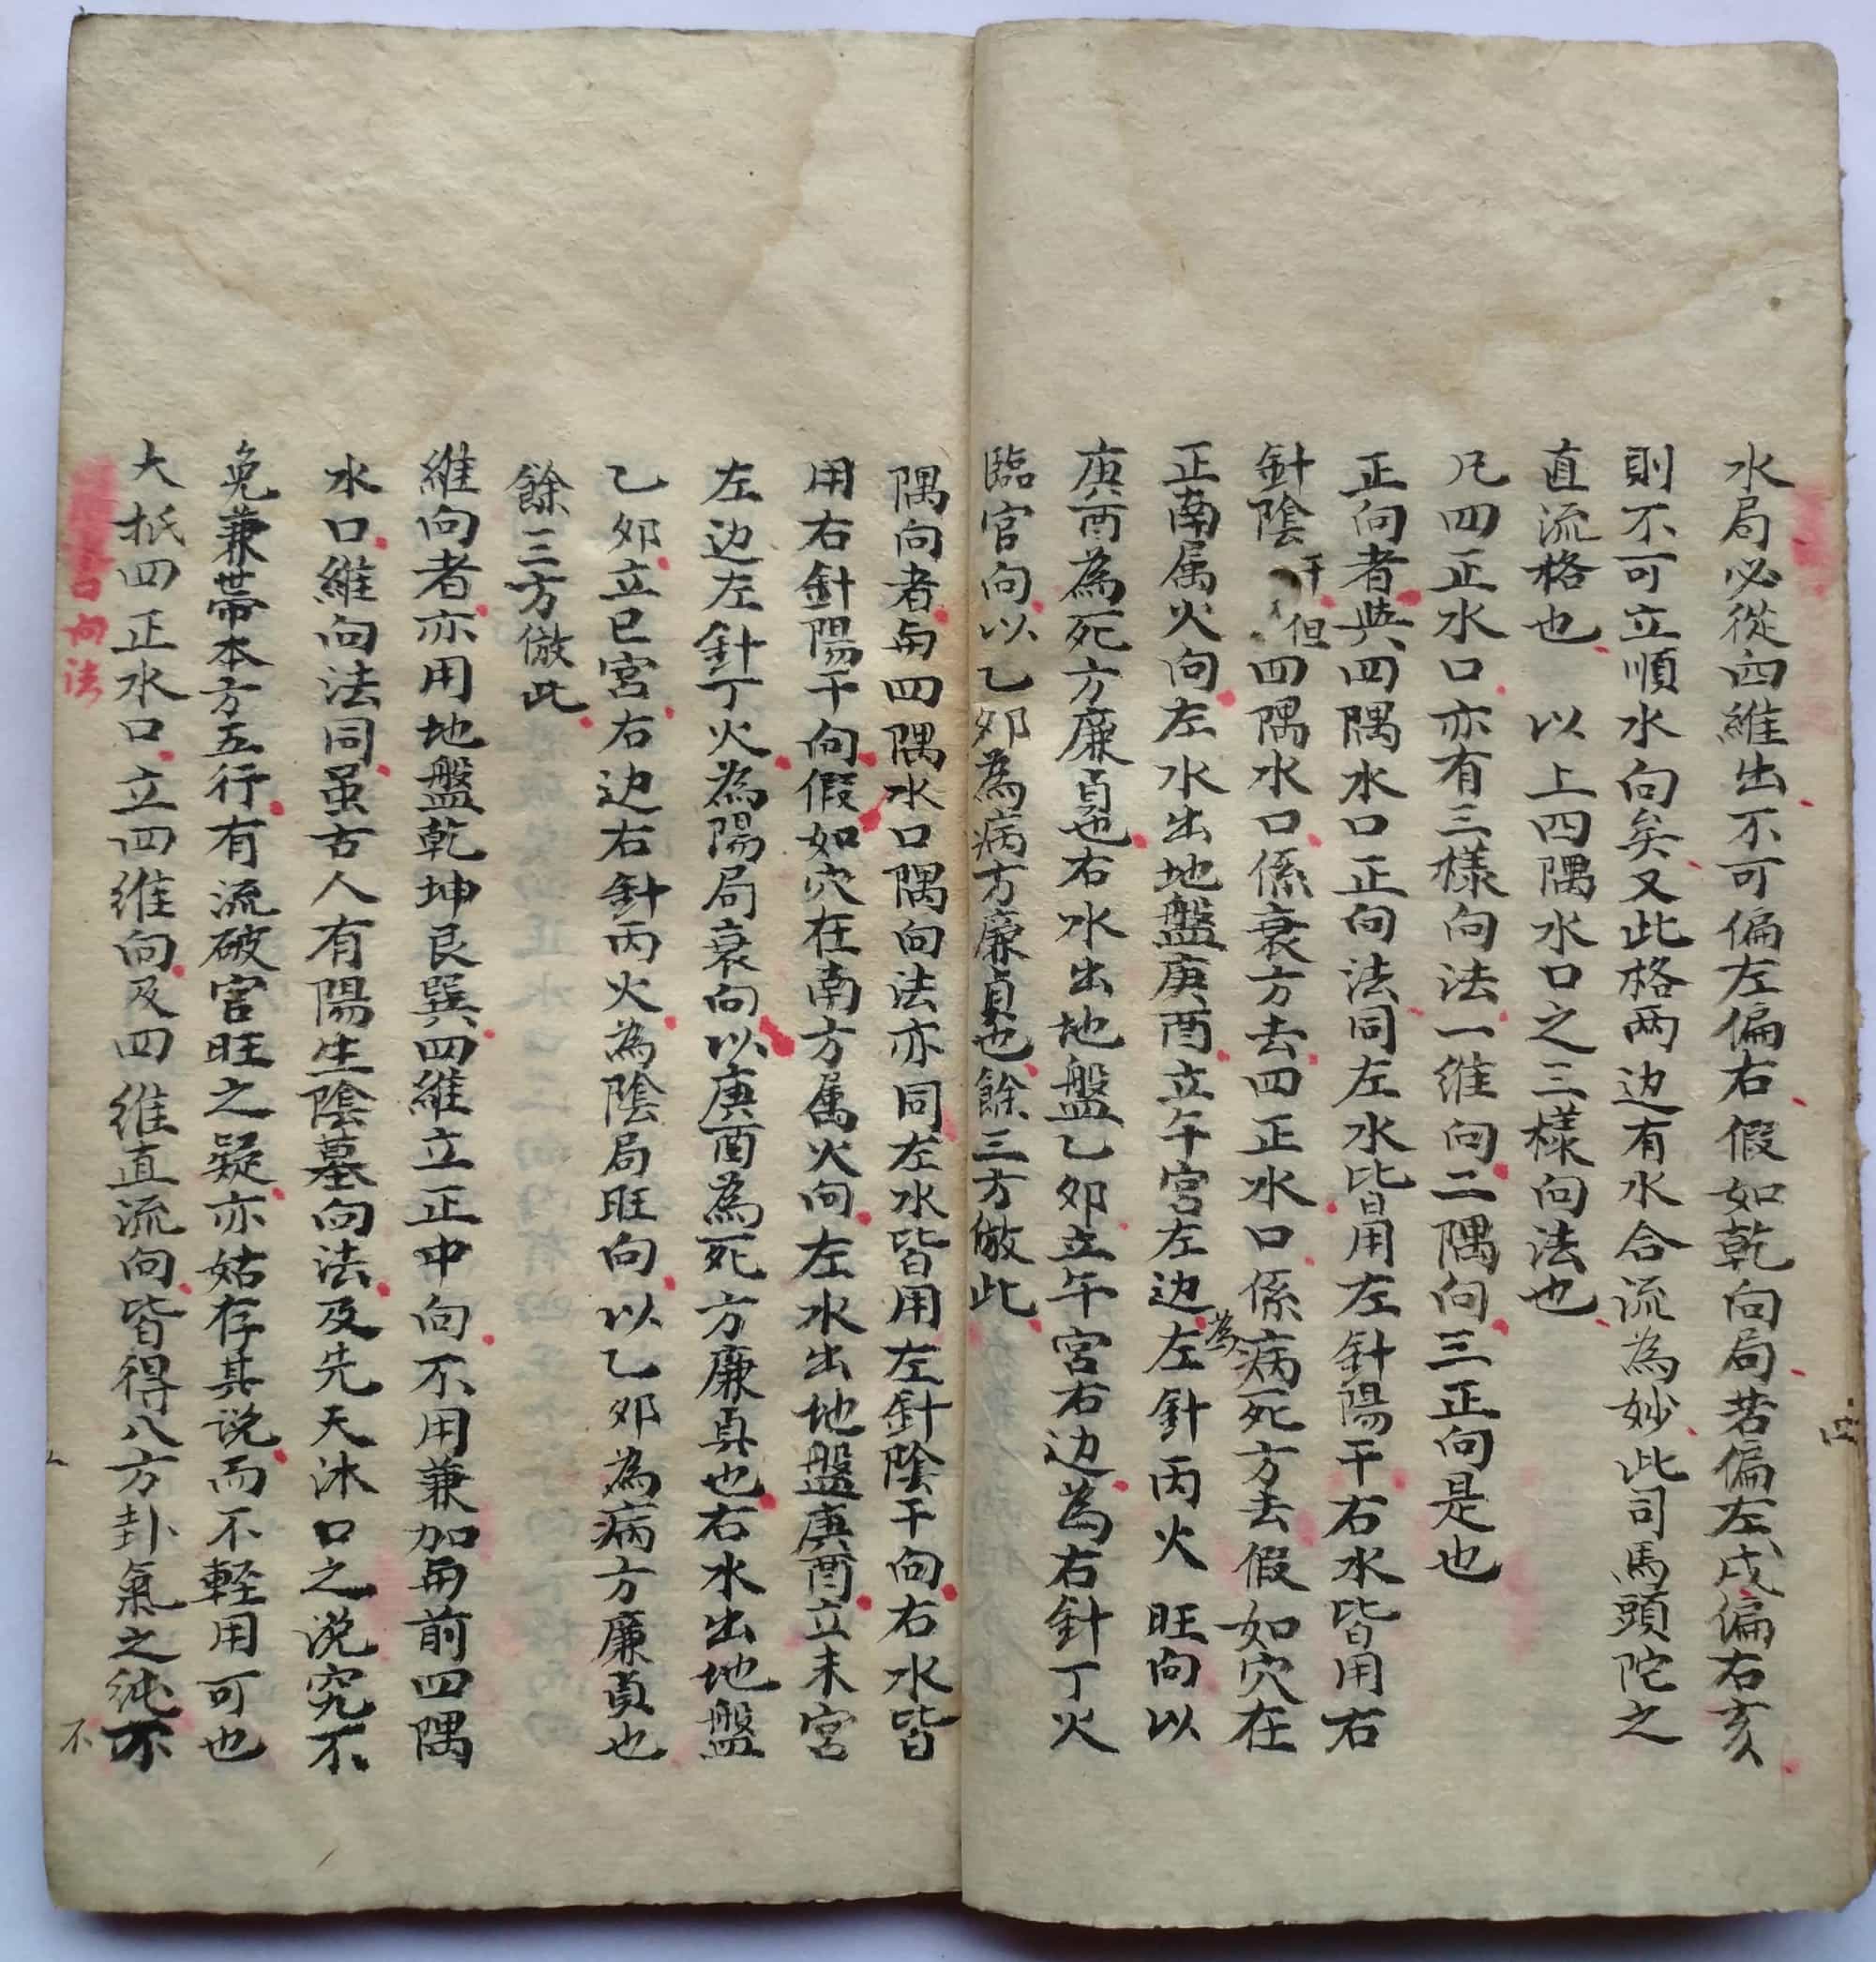 水局必從四維出不可偏左偏右假如乾向局若偏左戌偏右亥
則不可立順水向矣又此格两边有水合流為妙此司馬頭陀之
直流格也　以上四隅水口之三樣向法也
凡四正水口亦有三樣向法一維向二隅向三正向是也
正向者與四隅水口正向法同左水皆用左針陽干右水皆用右
針陰干但四隅水口係衰方去四正水口係病死方去假如穴在
正南属火向左水出地盤庚酉立午宮左边為左針丙火旺向以
庚酉為死方廉貞也右水出地盤乙夘立午宮右边為右針丁火
臨官向以乙夘為病方廉貞也餘三方倣此
隅向者與四隅水口隅向法亦同左水皆用左針陰干向右水皆
用右針陽干向假如穴在南方属火向左水出地盤庚酉立未宮
左边左針丁火為陽局衰向以庚酉為死方廉真也右水出地盤
乙夘立巳宮右边右針丙火為陰局旺向以乙夘為病方廉貞也
餘三方倣此
維向者亦用地盤乾坤艮巽四維立正中向不用兼加與前四隅
水口維向法同虽古人有陽生陰墓向法及先天沐口之说究不
免兼帯本方五行有流破官旺之疑亦姑存其说而不輕用可也
大抵四正水口立四維向及四維直流向皆得八方卦氣之純不
向法
不
四